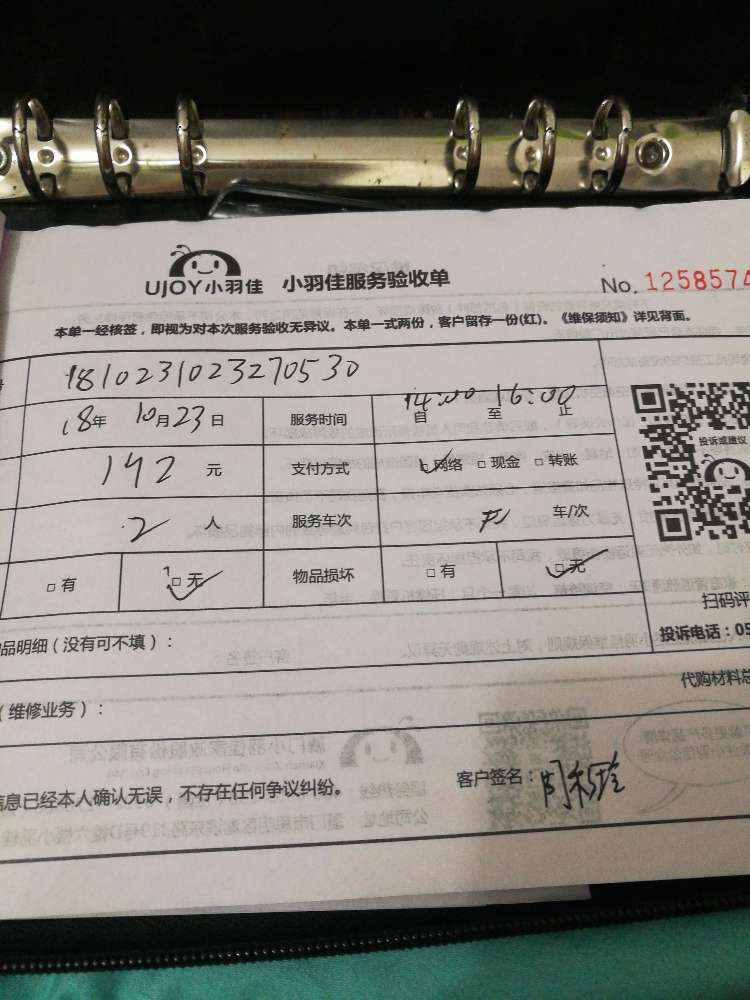 UJOY小羽佳 小羽佳服务验收单 No. 1258574
本单一经核签，即视为对本次服务验收无异议。本单一式两份，客户留存一份(红)。《维保须知》详见背面。
1810231023270530
18年 10月23日 服务时间 14:00 自 至 16:00 止
投诉或建议
192 元 支付方式 网络 □现金 □转账
2 人 服务车次 车/次
□有 □无 物品损坏 □有 □无
扫码评
品明细（没有可不填）：
投诉电话：05
（维修业务）：
代购材料总
信息已经本人确认无误，不存在任何争议纠纷。 客户签名：